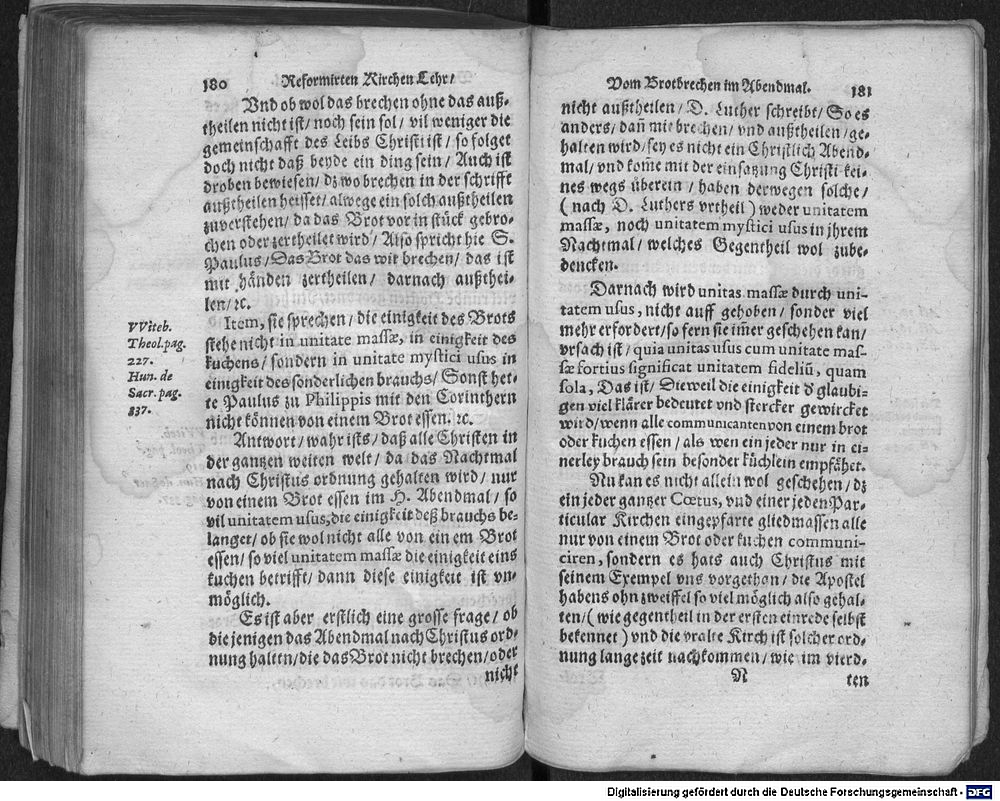 180 Reformirten Kirchen Lehr/
Vnd ob wol das brechen ohne das auß-
theilen nicht ist/ noch sein sol/ vil weniger die
gemeinschafft des Leibs Christi ist/ so folget
doch nicht daß beyde ein ding sein/ Auch ist
droben bewiesen/ dz wo brechen in der schrifft
außtheilen heisset/ alwege ein solch außtheilen
zuverstehen/ da das Brot vor in stück gebro-
chen oder zertheilet wird/ Also spricht hie S.
Paulus/ Das Brot das wir brechen/ das ist
mit händen zertheilen/ darnach außthei-
len/ ꝛc.
Item, sie sprechen/ die einigkeit des Brots
stehe nicht in unitate massæ, in einigkeit des
kuchens/ sondern in unitate mystici usus in
einigkeit des sonderlichen brauchs/ Sonst het-
te Paulus zu Philippis mit den Corinthern
nicht können von einem Brot essen. ꝛc.
VViteb.
Theol. pag.
227.
Hun. de
Sacr. pag.
837.
Antwort/ wahr ists/ daß alle Christen in
der gantzen weiten welt/ da das Nachtmal
nach Christus ordnung gehalten wird/ nur
von einem Brot essen im H. Abendmal/ so
vil unitatem usus, die einigkeit deß brauchs be-
langet/ ob sie wol nicht alle von einem Brot
essen/ so viel unitatem massæ die einigkeit eins
kuchen betrifft/ dann diese einigkeit ist vn-
möglich.
Es ist aber erstlich eine grosse frage/ ob
die jenigen das Abendmal nach Christus ord-
nung haltten/ die das Brot nicht brechen/ oder
nicht
Vom Brotbrechen im Abendmal. 181
nicht außtheilen/ D. Luther schreibt/ So es
anders/ dañ mit brechen/ vnd außtheilen/ ge-
halten wird/ sey es nicht ein Christlich Abend-
mal/ vnd kom̃e mit der einsatzung Christi kei-
nes wegs überein/ haben derwegen solche/
( nach D. Luthers vrtheil ) weder unitatem
massæ, noch unitatem mystici usus in jhrem
Nachtmal/ welches Gegentheil wol zube-
dencken.
Darnach wird unitas massæ durch uni-
tatem usus, nicht auff gehoben/ sonder viel
mehr erfordert/ so fern sie im̃er geschehen kan/
vrsach ist/ quia unitas usus cum unitate mas-
sæ fortius significat unitatem fideliũ, quam
sola, Das ist/ Dieweil die einigkeit d̕ glaubi-
gen viel klärer bedeutet vnd stercker gewircket
wird/ wenn alle communicanten von einem brot
oder kuchen essen/ als wen ein jeder nur in ei-
nerley brauch sein besonder küchlein empfähet.
Nu kan es nicht allein wol geschehen/ dz
ein jeder gantzer Cœtus, vnd einer jeden Par-
ticular Kirchen eingepfarte gliedmassen alle
nur von einem Brot oder kuchen communi-
ciren, sondern es hats auch Christus mit
seinem Exempel vns vorgethan/ die Apostel
habens ohn zweiffel so viel möglich also gehal-
ten/ ( wie gegentheil in der ersten einrede selbst
bekennet ) vnd die vralte Kirch ist solcher ord-
nung lange zeit nachkommen/ wie im vierd-
N ten
Digitalisierung gefördert durch die Deutsche Forschungsgemeinschaft - DFG